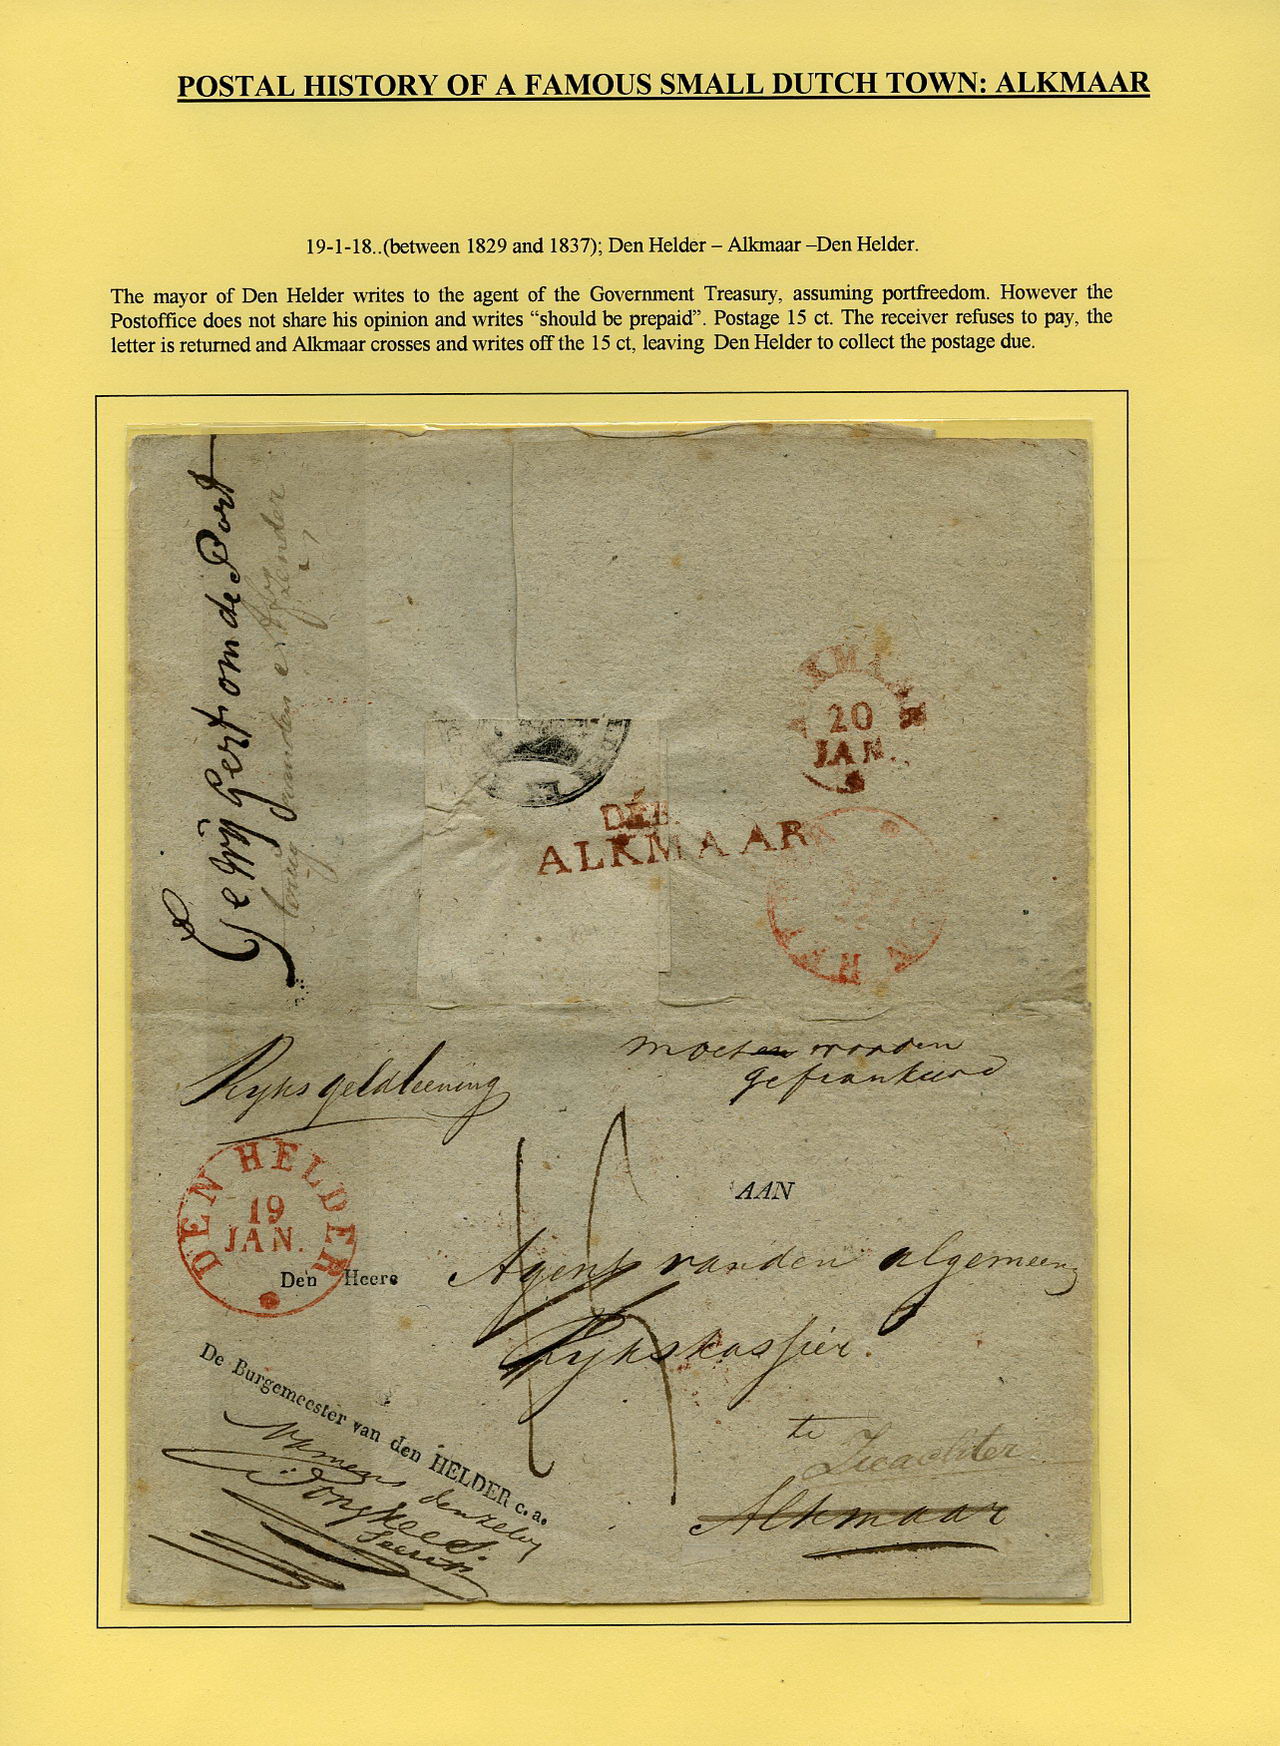 POSTAL HISTORY OF A FAMOUS SMALL DUTCH TOWN: ALKMAAR
19-1-18..(between 1829 and 1837); Den Helder – Alkmaar –Den Helder.
The mayor of Den Helder writes to the agent of the Government Treasury, assuming portfreedom. However the
Postoffice does not share his opinion and writes “should be prepaid”. Postage 15 ct. The receiver refuses to pay, the
letter is returned and Alkmaar crosses and writes off the 15 ct, leaving Den Helder to collect the postage due.
Geweigert om de Port
20
JAN.
DÉB.
ALKMAAR
Ryksgeldleening
moeten worden
gefrankeerd
DEN HELDER
19
JAN.
15
AAN
Den Heere
Agent van den algemeenen
Rykskassier.
te
Alkmaar
De Burgemeester van den HELDER c.a.
Namens denzelven